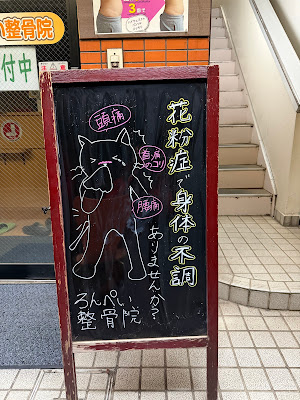 整骨院
付中
3
花粉症で身体の不調
ありませんか?
頭痛
肩コリ
腰痛
ろんぺい
整骨院